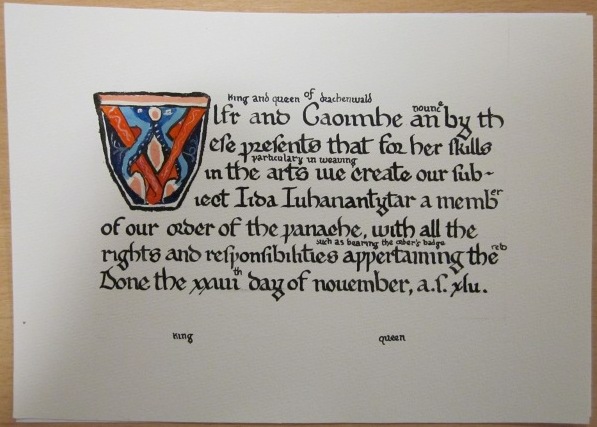 king and queen of drachenwald
Ulfr and Caoimhe announce by th
ese presents that for her skills
particulary in weaving
in the arts we create our sub-
iect Iida Iuhanantytar a member
of our order of the panache, with all the
such as bearing the order's badge
rights and responsibilities appertaining thereto
Done the xxiiith day of november, a.s. xlv.
king queen